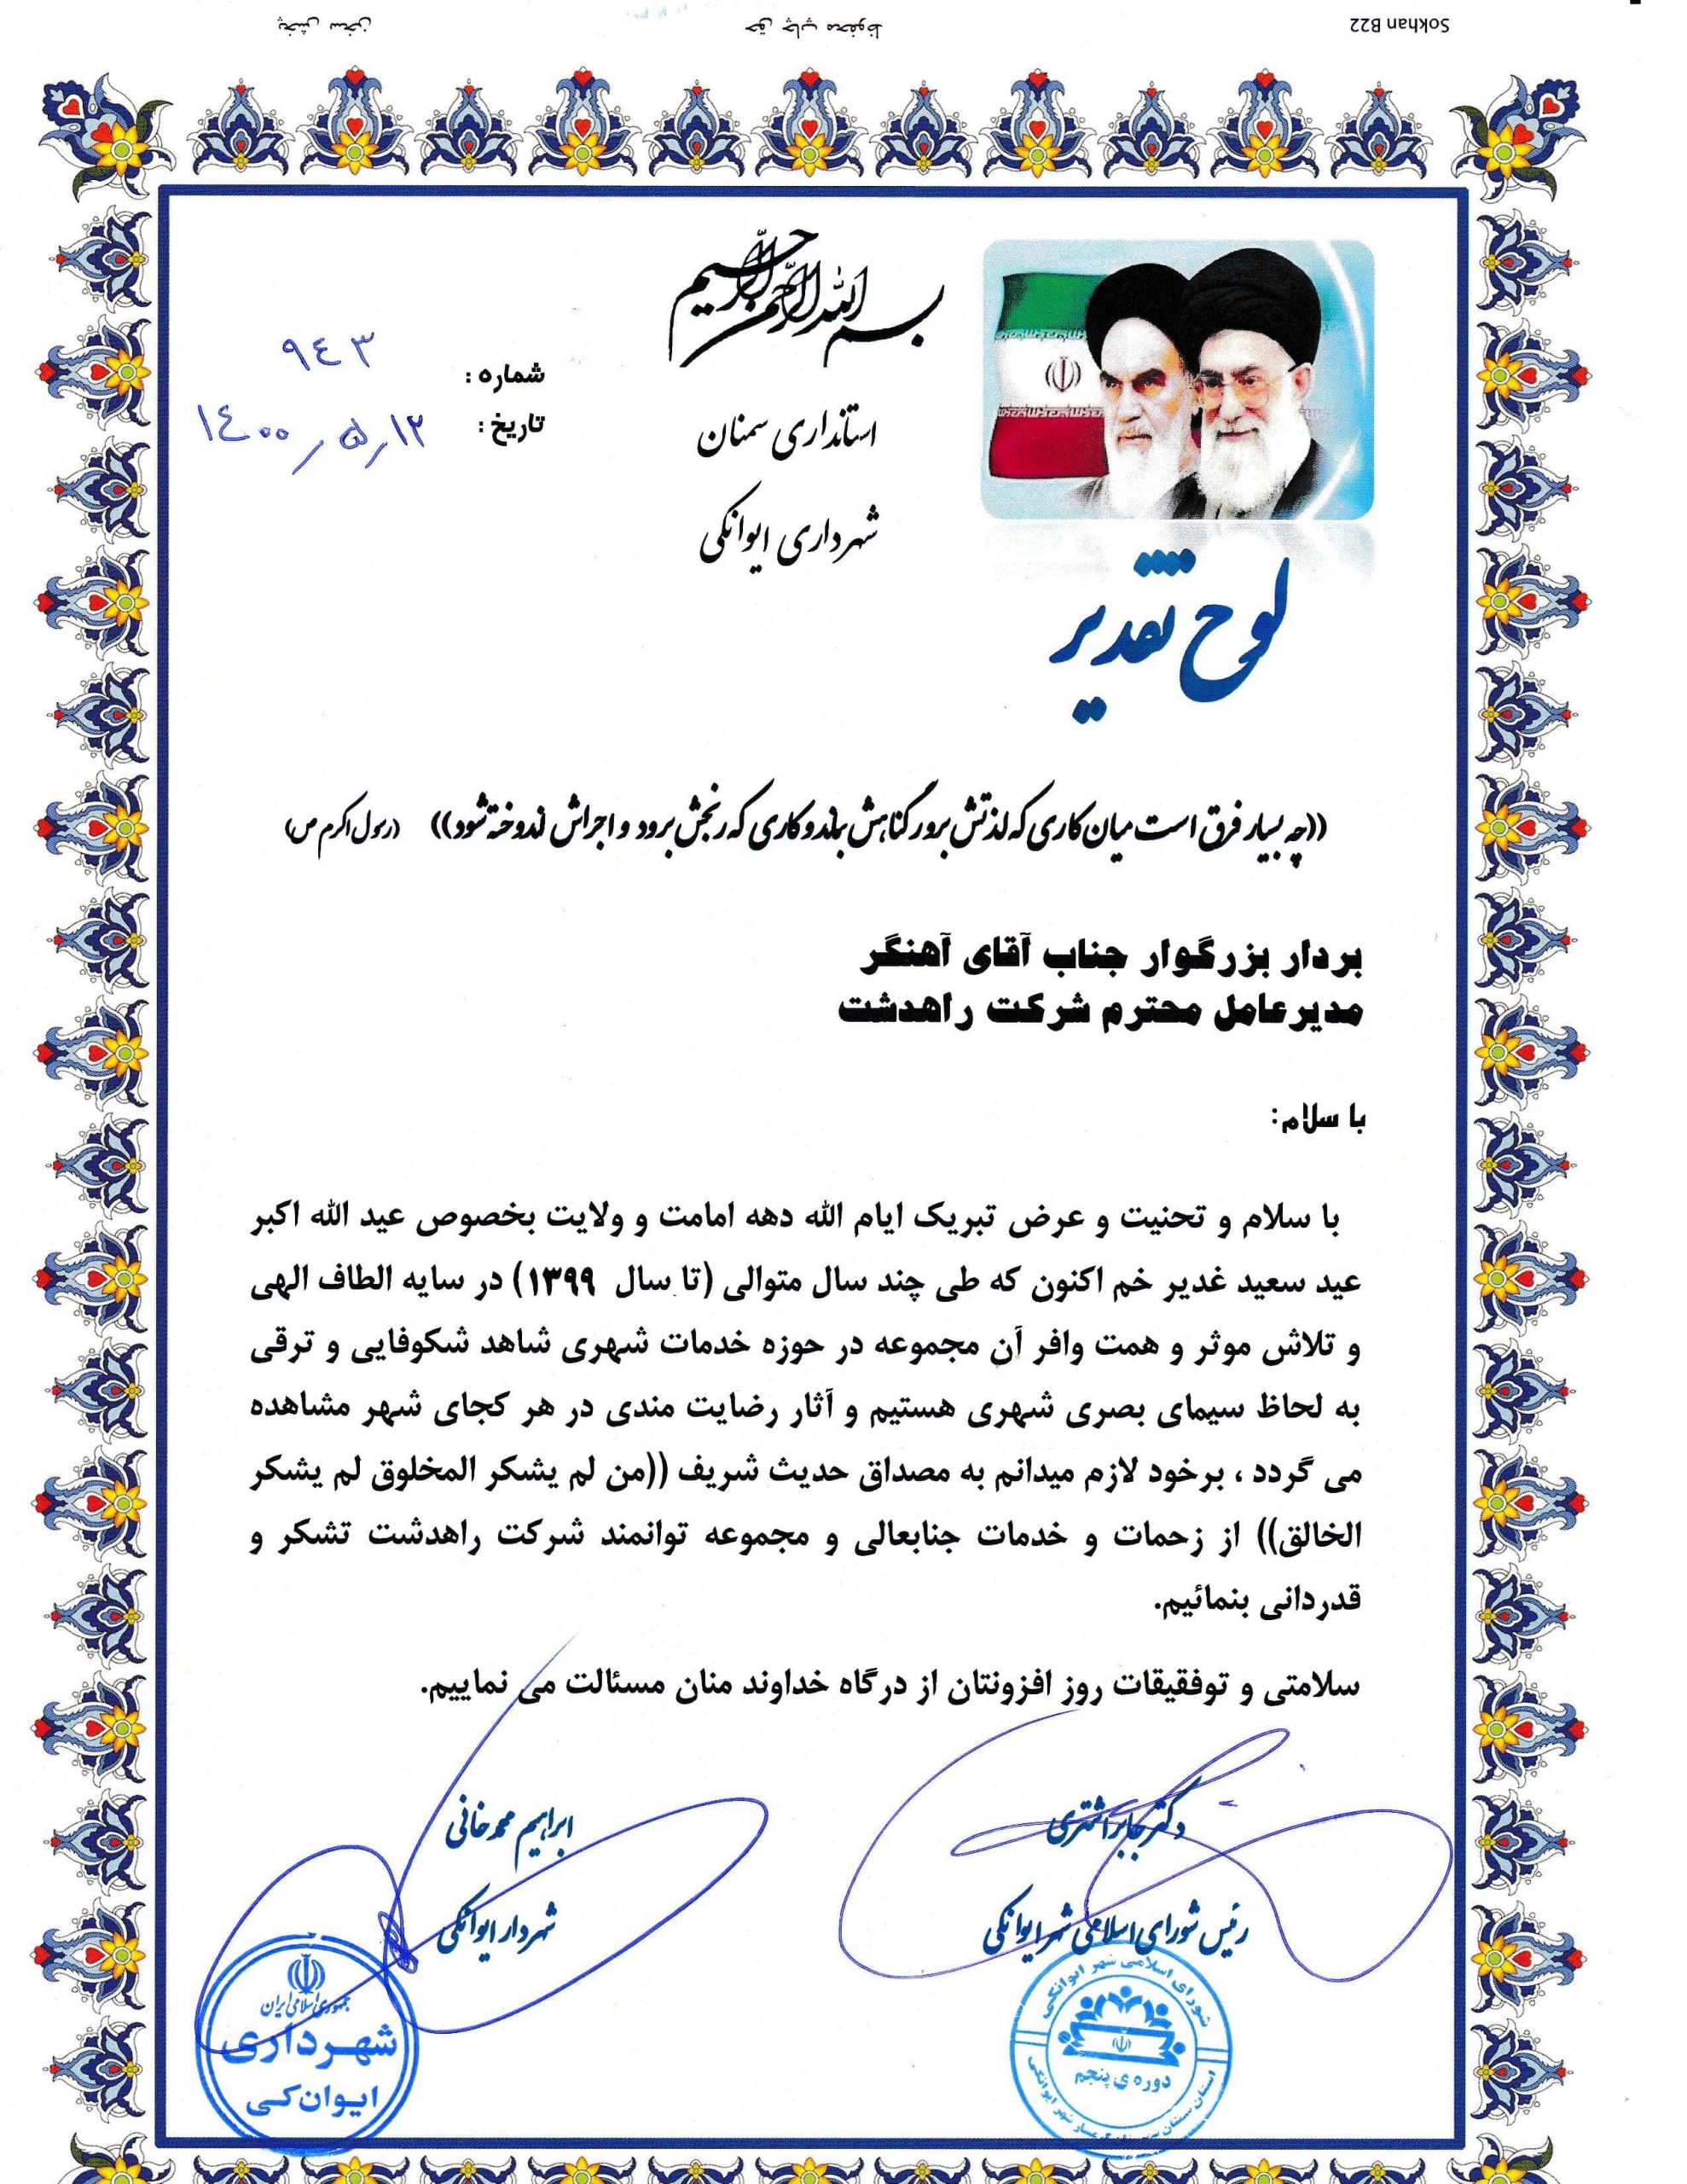 Sokhan B22
حق چاپ محفوظ
پخش سخن
بسم الله الرحمن الرحیم
استانداری سمنان
شهرداری ایوانکی
شماره : ۹۴۳
تاریخ: ۱۴۰۰/۵/۱۲
لوح تقدیر
((چه بسیار فرق است میان کاری که لذتش برور گناهش بماند و کاری که رنجش برود و اجراش اندوخته شود)) (رسول اکرم ص)
بردار بزرگوار جناب آقای آهنگر
مدیرعامل محترم شرکت راهدشت
با سلام:
با سلام و تحنیت و عرض تبریک ایام الله دهه امامت و ولایت بخصوص عید الله اکبر
عید سعید غدیر خم اکنون که طی چند سال متوالی (تا سال ۱۳۹۹) در سایه الطاف الهی
و تلاش موثر و همت وافر آن مجموعه در حوزه خدمات شهری شاهد شکوفایی و ترقی
به لحاظ سیمای بصری شهری هستیم و آثار رضایت مندی در هر کجای شهر مشاهده
می گردد ، برخود لازم میدانم به مصداق حدیث شریف ((من لم یشکر المخلوق لم یشکر
الخالق)) از زحمات و خدمات جنابعالی و مجموعه توانمند شرکت راهدشت تشکر و
قدردانی بنمائیم.
سلامتی و توفقیقات روز افزونتان از درگاه خداوند منان مسئالت می نماییم.
دکتر جابر اشتری
رئیس شورای اسلامی شهر ایوانکی
ابراهیم محمدخانی
شهردار ایوانکی
شورای اسلامی شهر ایوانکی
دوره ی پنجم
جمهوری اسلامی ایران
شهرداری
ایوان کی